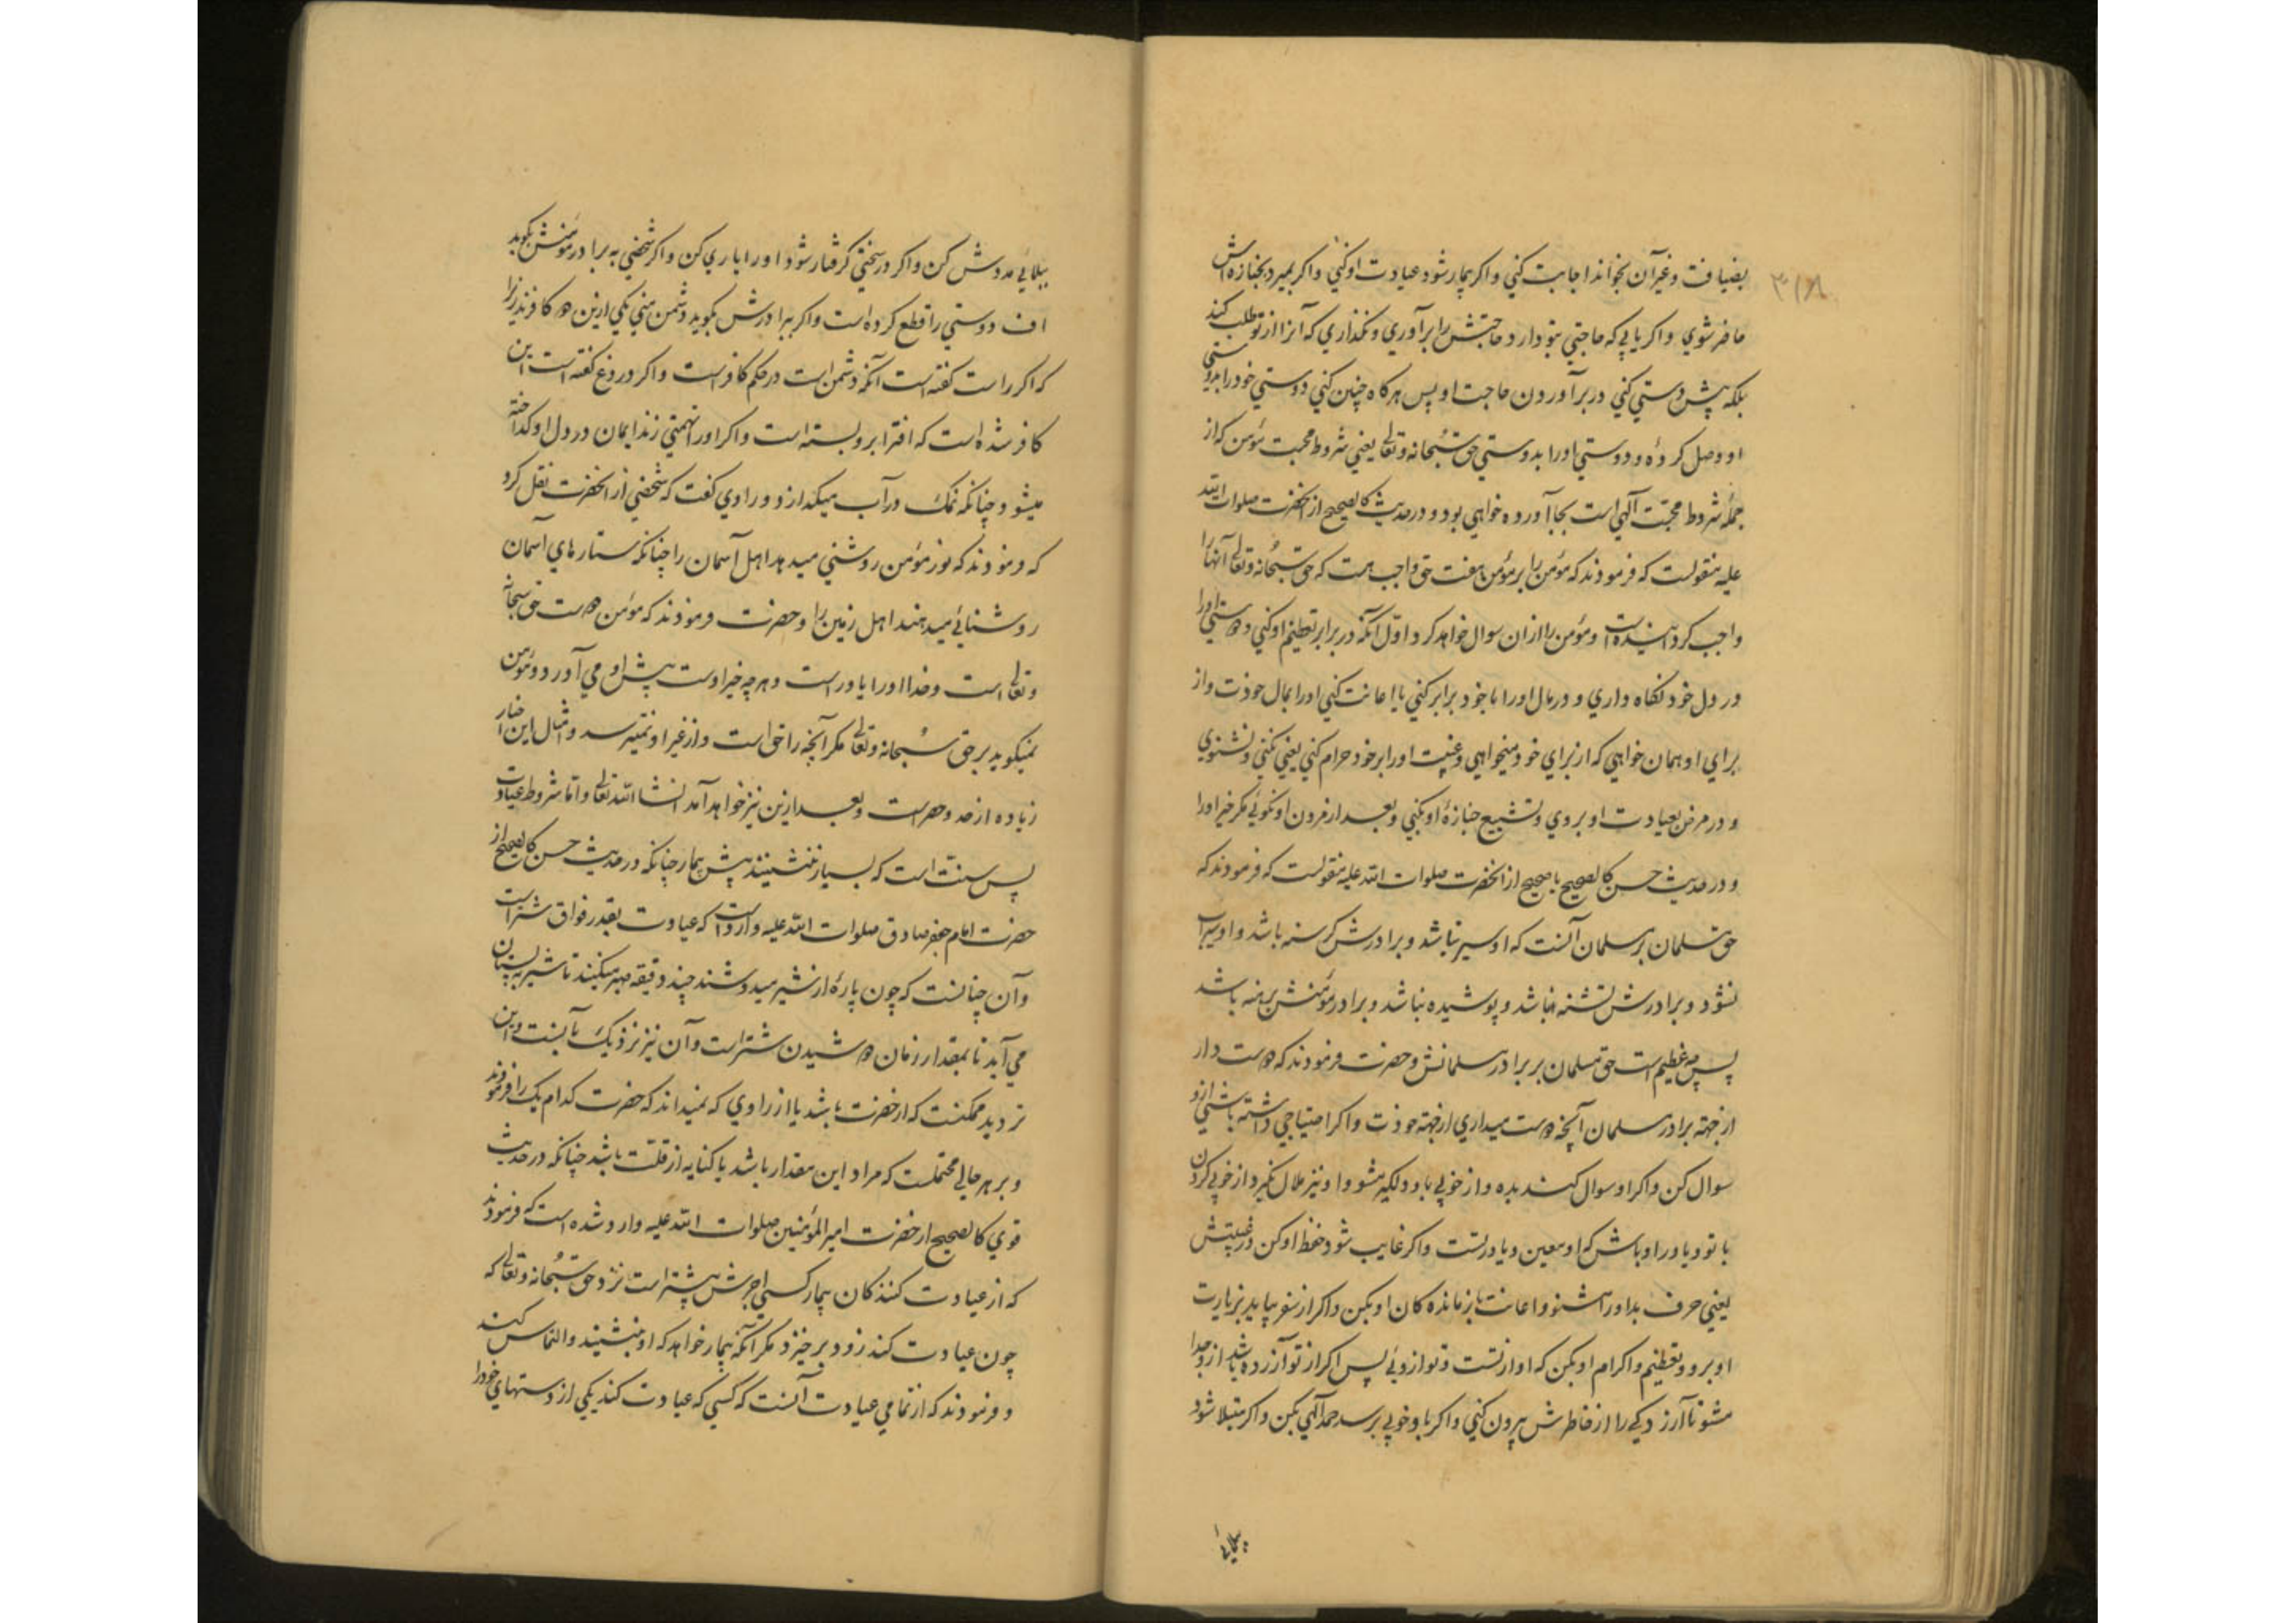 بضیافت و غیرآن بخواند اجابت کني و اکر بیمار شود عیادت او کني و اکر بمیرد بجنازه اش
۳۱۸
حاضر شوي و اکر یابي که حاجتي بتو دارد حاجتش را برآوري و نکذاري که آنرا از تو طلب کند
بلکه پیش دستي کني در برآوردن حاجت او پس هرکاه چنین کني دوستي خود را بدوستي
او وصل کردۀ و دوستي او را بدوستي حق سبحانه و تعالی یعني شروط محبت مؤمن که از
جملۀ شروط محبّت آلهي است بجا آورده خواهي بود و در حدیث کالصحیح از انحضرت صلوات الله
علیه منقولست که فرمودند که مؤمن را بر مؤمن هفت حق واجب هست که حق سبحانه و تعالی آنها را
واجب کردانیده است و مؤمن را ازان سوال خواهد کرد اوّل آنکه در برابر تعظیم او کني و دوستي او را
در دل خود نکاه داري و در مال او را با خود برابر کني یا اعانت کني او را بمال خودت و از
براي او همان خواهي که از براي خود میخواهي و غیبت او را بر خود حرام کني یعني نکني و نشنوي
و در مرض بعیادت او بروي و تشییع جنازۀ او بکني و بعد از مردن او نکوئي مکر خیر او را
و در حدیث حسن کالصحیح یا صحیح از انحضرت صلوات الله علیه منقولست که فرمودند که
حق مسلمان بر مسلمان آنست که او سیر نباشد و برادرش کرسنه باشد و او سیراب
نشود و برادرش تشنه باشد و پوشیده نباشد و برادر مؤمنش برهنه باشد
پس چه عظیم است حق مسلمان بر برادر مسلمانش و حضرت فرمودند که دوست دار
از جهته برادر مسلمان آنچه دوست میداري از جهته خودت و اکر احتیاجي داشته باشي ازو
سوال کن و اکر او سوال کند بده و از خوبي باو دلکیر مشو و او نیز ملال نکیرد از خوبي کردن
با تو و یاور او باش که او معین و یاور تست و اکر غایب شود حفظ او کن در غیبتش
یعني حرف بد او را مشنو و اعانت بازمانده کان او بکن و اکر از سفر بیاید بزیارت
او برو و تعظیم و اکرام او بکن که او از تست و تو از وئي پس اکر از تو آزرده باشد ازو جدا
مشو تا آزردکي را از خاطرش بیرون کني و اکر باو خوبي برسد حمد آلهي بکن و اکر مبتلا شود
ببلائي
ببلائي مددش کن و اکر در سختي کرفتار شود او را یاري کن و اکر شخصي به برادر مؤمنش بکوید
اف دوستي را قطع کرده است و اکر ببرادرش بکوید دشمن مني یکي ازین دو کافرند زیرا
که اکر راست کفته است آنکه دشمن است در حکم کافر است و اکر دروغ کفته است این
کافر شده است که افترا برو بسته است و اکر او را تهمتي زند ایمان در دل او کداخته
میشود چنانکه نمک در آب میکدازد و راوي کفت که شخصي از انحضرت نقل کرد
که فرمودند که نور مؤمن روشني میدهد اهل آسمان را چنانکه ستارهاي آسمان
روشنائي میدهند اهل زمین را و حضرت فرمودند که مؤمن دوست حق سبحانه
و تعالی است و خدا او را یاور است و هرچه خیر اوست پیش او مي آورد و مؤمن
نمیکوید بر حق سبحانه و تعالی مکر آنچه را حق است و از غیر او نمیترسد و امثال این اخبار
زیاده از حد و حصر است و بعد ازین نیز خواهد آمد انشاالله تعالی و اما شروط عیادت
پس سنت است که بسیار ننشینند پیش بیمار چنانکه در حدیث حسن کالصحیح از
حضرت امام جعفر صادق صلوات الله علیه وارد است که عیادت بقدر فواق شتر است
و آن چنانست که چون پارۀ از شیر میدوشند چند دقیقه صبر میکنند تا شیر به پستان
مي آید تا بمقدار زمان دوشیدن شتر است و آن نیز نزدیک بآنست و این
تردید ممکنست که از حضرت باشد یا از راوي که نمیداند که حضرت کدام یک را فرمودند
و بر هر حالي محتملست که مراد این مقدار باشد یا کنایه از قلّت باشد چنانکه در حدیث
قوي کالصحیح از حضرت امیر المؤمنین صلوات الله علیه وارد شده است که فرمودند
که از عیادت کنندکان بیمار کسي اجرش بیشتر است نزد حق سبحانه و تعالی که
چون عیادت کند زود برخیزد مکر آنکه بیمار خواهد که او بنشیند و التماس کند
و فرمودند که از تمامي عیادت آنست که کسي که عیادت کند یکي از دستهاي خود را